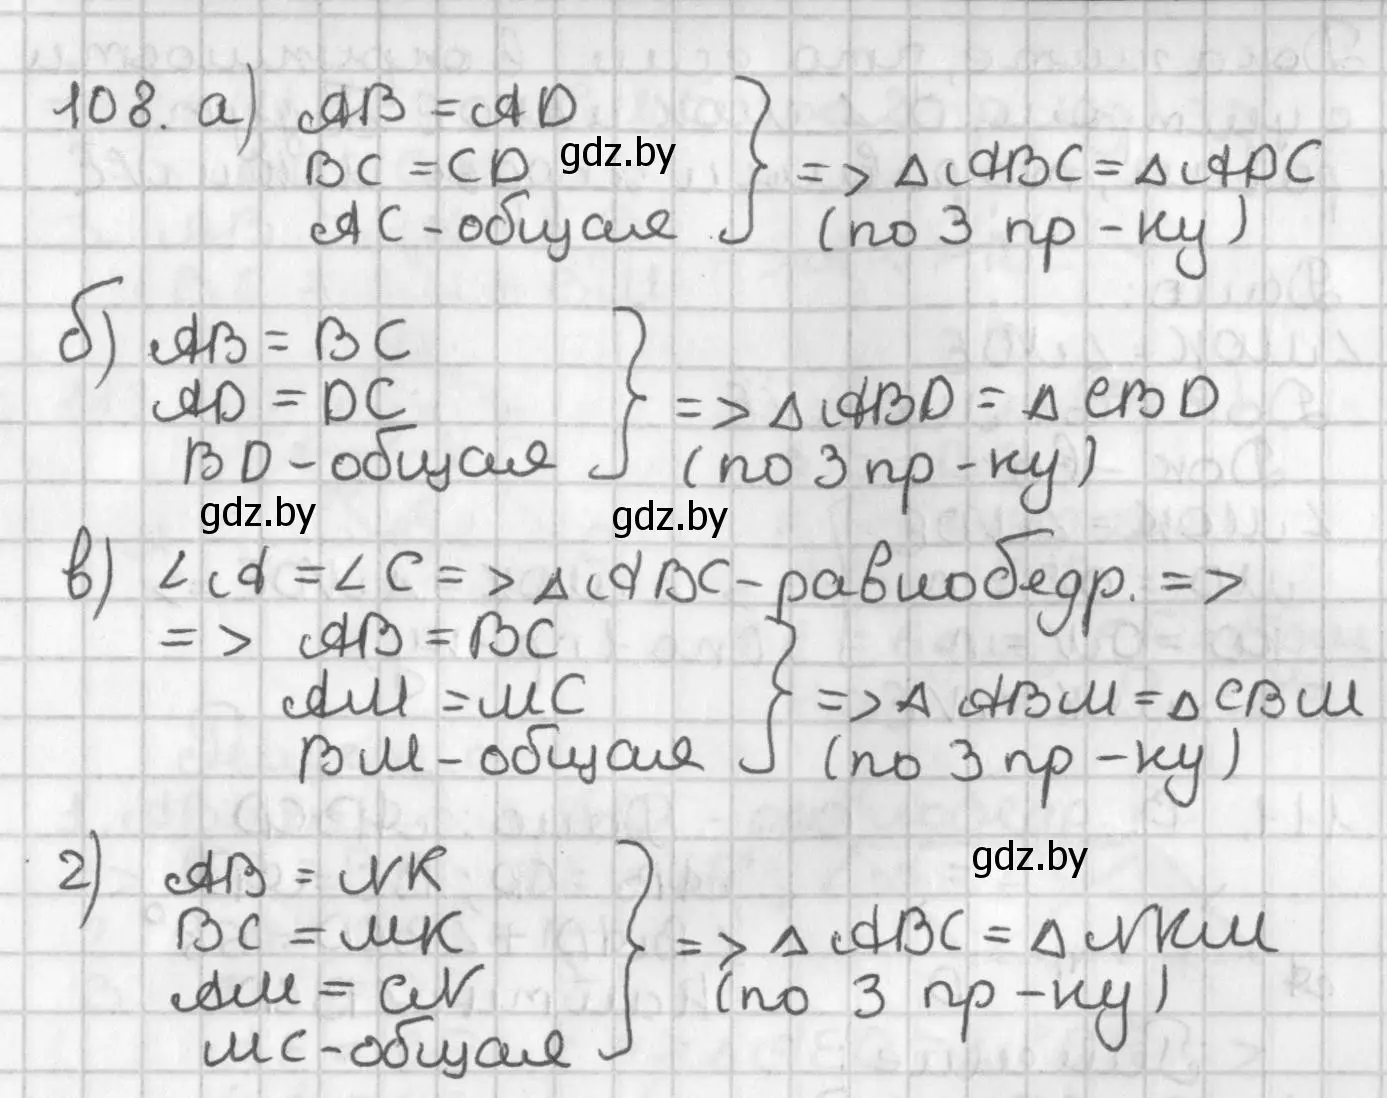 108. а) AB = AD
BC = CD
AC - общая
=> △ ABC = △ ADC
(по 3 пр - ку)
gdz.by
б) AB = BC
AD = DC
BD - общая
=> △ ABD = △ CBD
(по 3 пр - ку)
gdz.by
gdz.by
в) ∠ A = ∠ C => △ ABC - равнобедр. =>
=> AB = BC
AM = MC
BM - общая
=> △ ABM = △ CBM
(по 3 пр - ку)
gdz.by
г) AB = NK
BC = MK
AM = CN
MC - общая
=> △ ABC = △ NKM
(по 3 пр - ку)